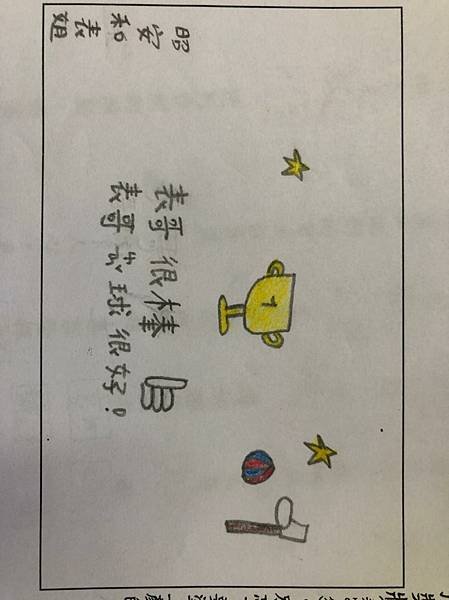 1
表哥很棒
表哥 球很好!
昭安和表姐